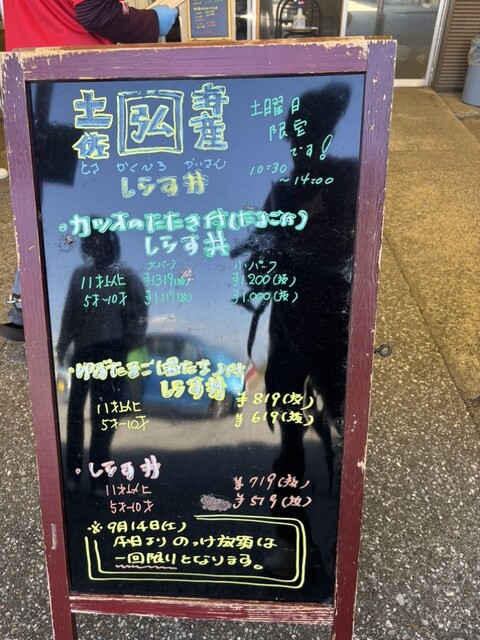 土佐 弘 海産
とさ かくひろ かいさん
しらす丼
土曜日
限定
です!
10:30
~14:00
・カツオのたたき付(たまご付)
しらす丼
大・パーフ 小・パーフ
11才以上 ¥1319(抜) ¥1,200(抜)
5才~10才 ¥1,119(抜) ¥1,000(抜)
しらす丼
11才以上 ¥819(抜)
5才~10才 ¥619(抜)
・しらす丼
11才以上 ¥719(抜)
5才~10才 ¥519(抜)
※9月14日(土)
本日より のっけ放題は
一回限りとなります。